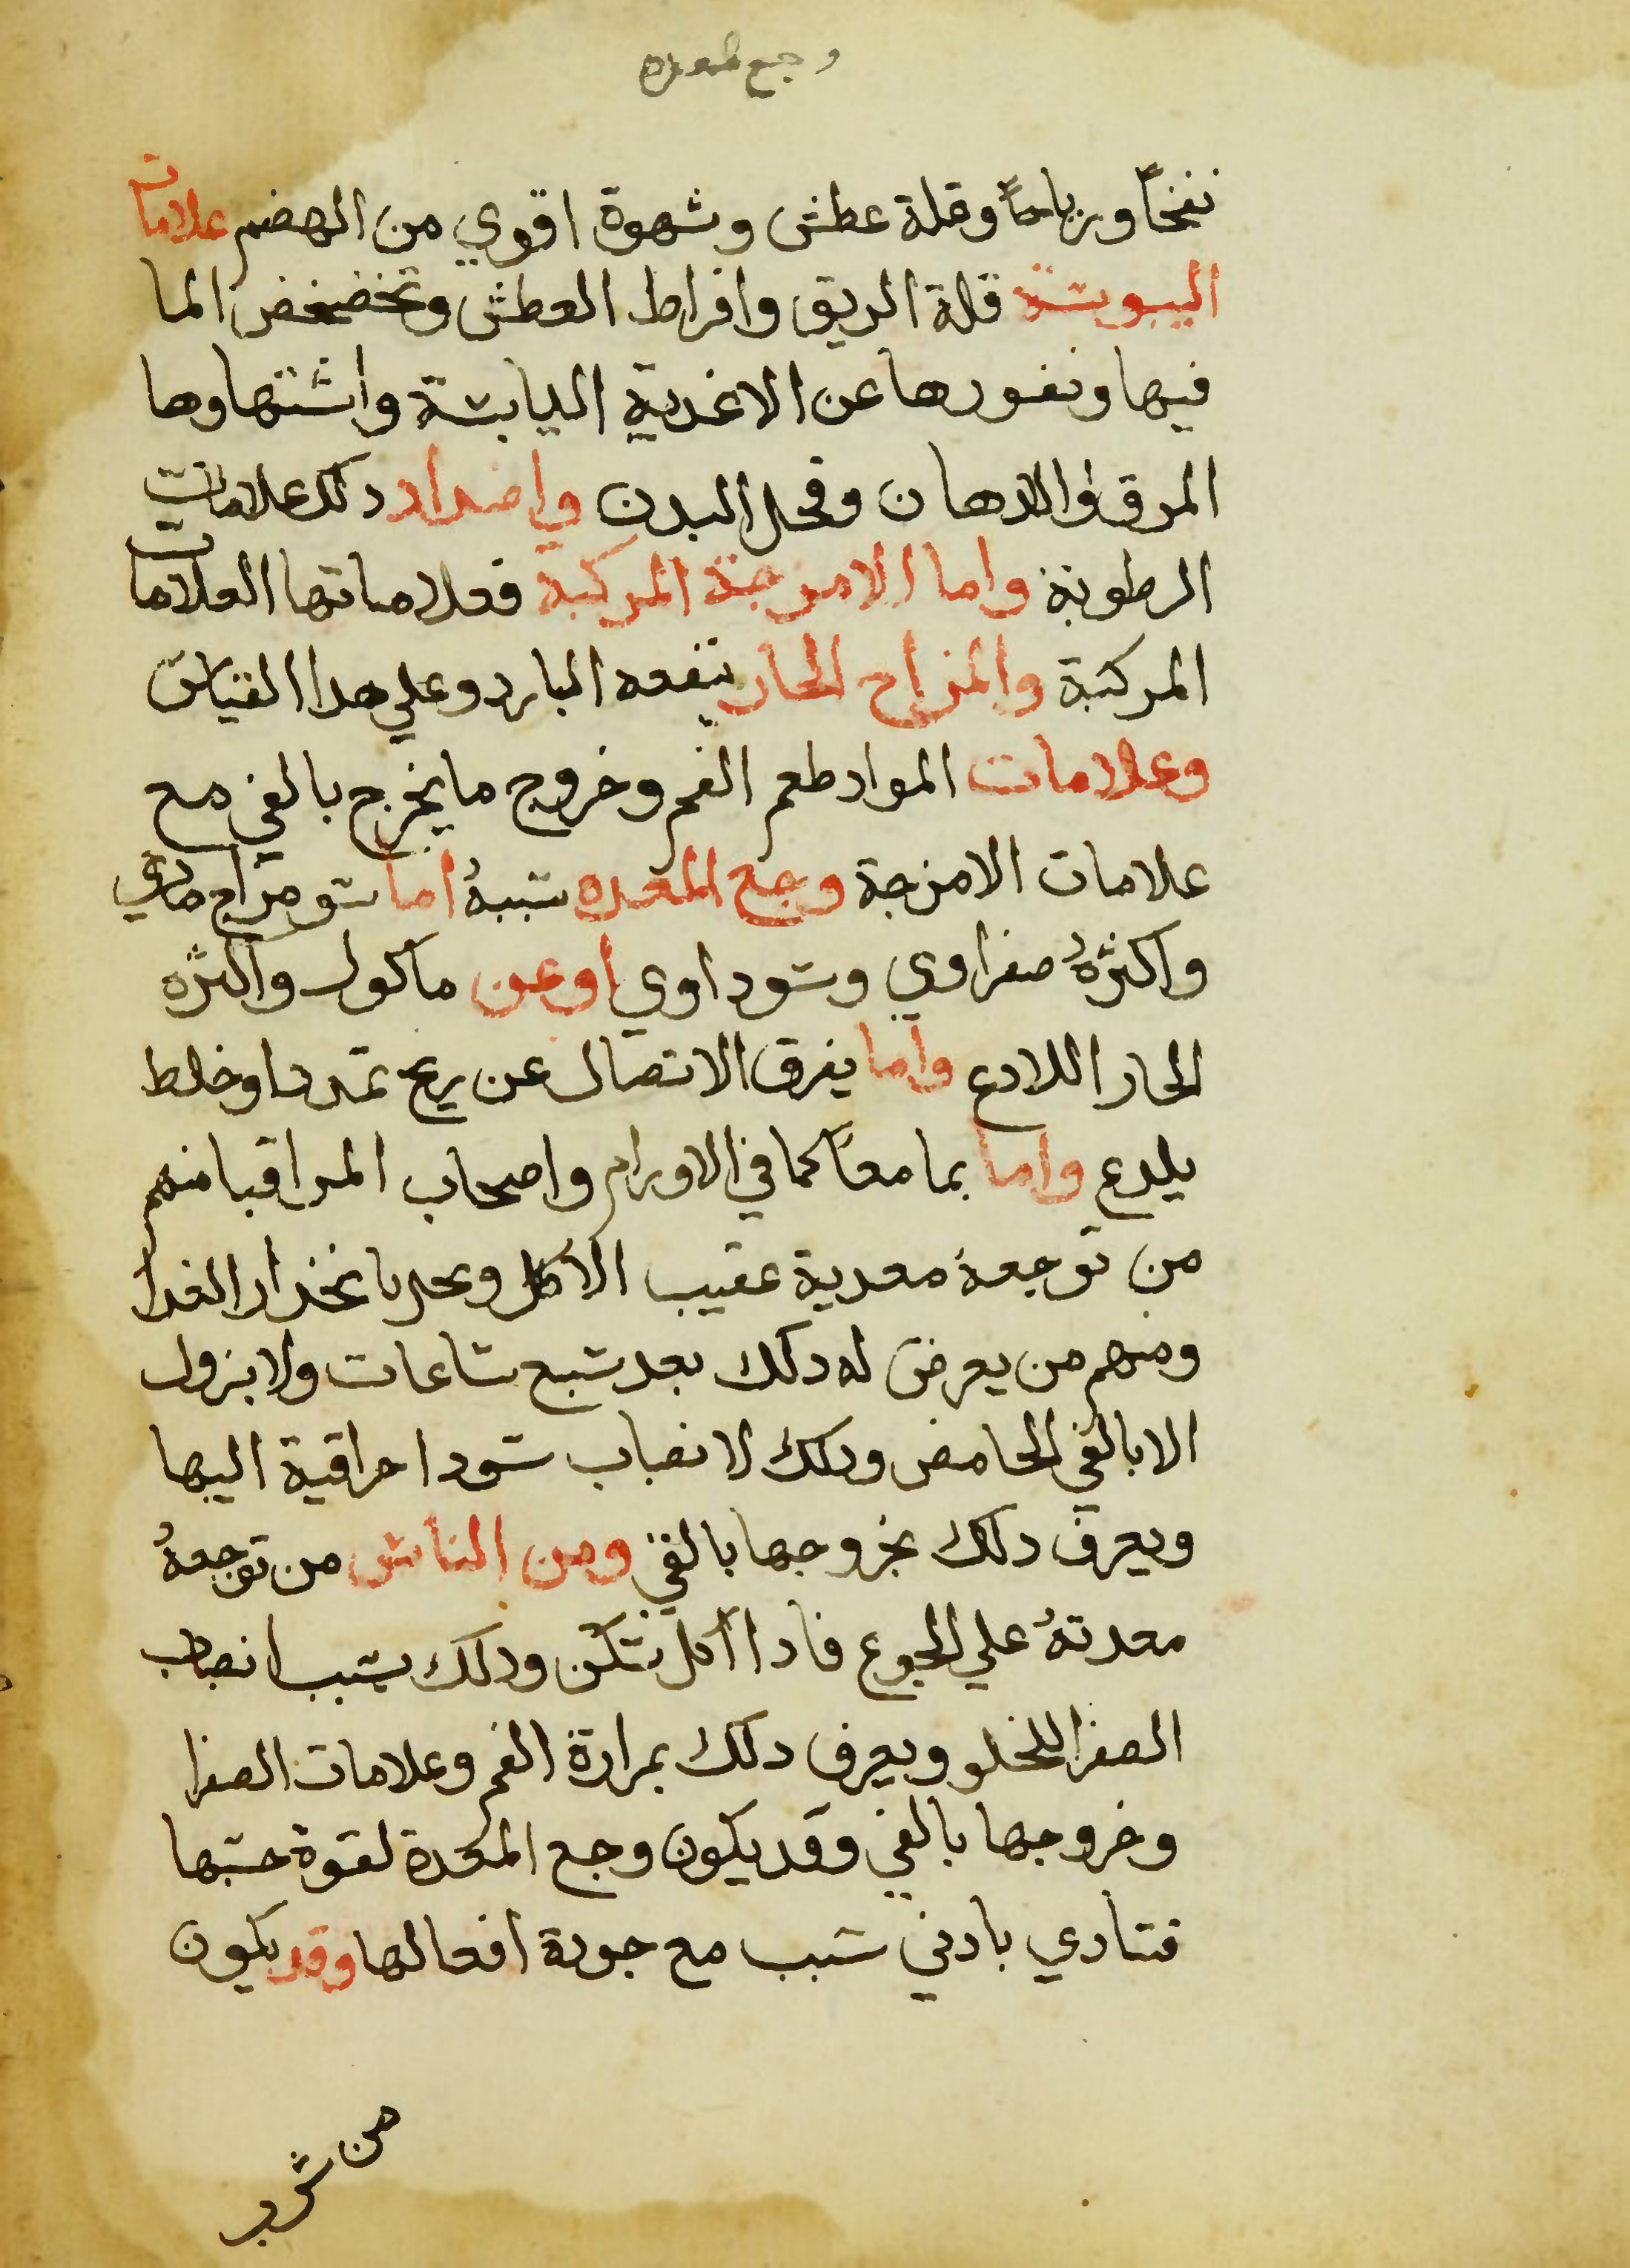 وجع المعده
نفخاً ورياحاً وقلة عطش وشهوة اقوي من الهضم علامات
اليبوسة قلة الريق وافراط العطش وتخضخض الما
فيها ونفورها عن الاغدية اليابسة واشتهاوها
المرق والادهان وقحل البدن واضداد دلك علامات
الرطوبة واما الامزجة المركبة فعلاماتها العلامات
المركبة والمزاج الحار ينفعه البارد وعلي هدا القياس
وعلامات المواد طعم الفم وخروج ما يخرج بالقي مع
علامات الامزجة وجع المعده سببهُ اما سو مزاج مادي
واكثرهُ صفراوي وسوداوي او عن ماكول واكثره
الحار اللادع واما يفرق الاتصال عن ريح تمدد او خلط
يلدع واما بما معاً كما في الاورام واصحاب المراقيا منهم
من توجعهُ معديه عقيب الاكل وبانخدار الغدا
ومنهم من يعرض له دلك بعد سبع ساعات ولا يزول
الا بالقي الحامض ودلك لانصباب سودا مراقية اليها
ويعرف دلك بخروجها بالقي ومن الناس من توجعهُ
معدتهُ علي الجوع فادا اكل سكن ودلك بسبب انصباب
الصفرا للخلو ويعرف دلك بمرارة الفم وعلامات الصفرا
وخروجها بالقي وقد يكون وجع المعدة لقوة حسها
فتتادي بادني سبب مع جودة افعالها وقد يكون
من شرب